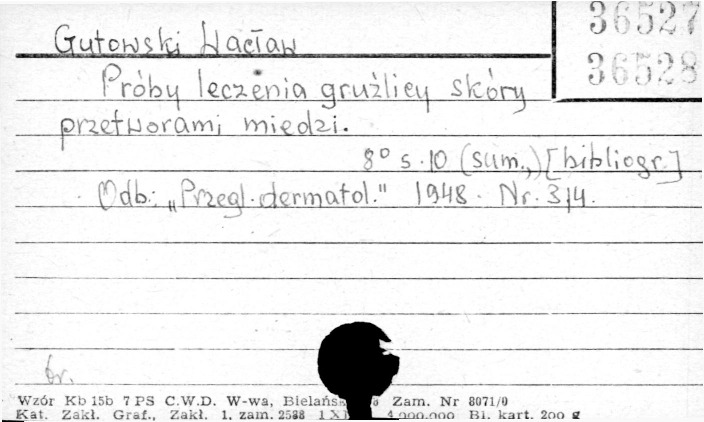 36527
36528
Gutowski Wacław
Próby leczenia gruźlicy skóry
przetworami miedzi.
8° s. 10 (sum.,) [bibliogr.]
Odb: „Przegl. dermatol." 1948. Nr. 3/4.
br.
Wzór Kb 15b 7 PS C.W.D. W-wa, Zam. Nr 8071/0
Kat. Zakł. Graf., Zakł. 1, zam. 2588 4.000.000 Bl. kart. 200 g